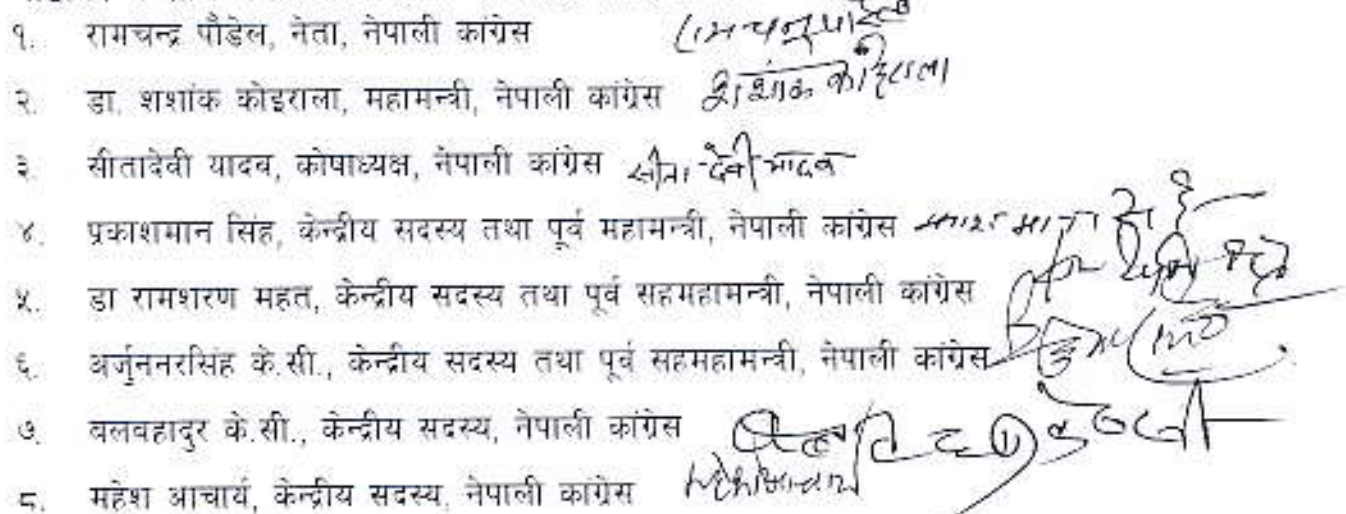 १. रामचन्द्र पौडेल, नेता, नेपाली कांग्रेस
२. डा. शशांक कोइराला, महामन्त्री, नेपाली कांग्रेस शशांक कोइराला
३. सीतादेवी यादव, कोषाध्यक्ष, नेपाली कांग्रेस सीता देवी यादव
४. प्रकाशमान सिंह, केन्द्रीय सदस्य तथा पूर्व महामन्त्री, नेपाली कांग्रेस
५. डा रामशरण महत, केन्द्रीय सदस्य तथा पूर्व सहमहामन्त्री, नेपाली कांग्रेस
६. अर्जुननरसिंह के.सी., केन्द्रीय सदस्य तथा पूर्व सहमहामन्त्री, नेपाली कांग्रेस
७. बलवहादुर के.सी., केन्द्रीय सदस्य, नेपाली कांग्रेस
८. महेश आचार्य, केन्द्रीय सदस्य, नेपाली कांग्रेस